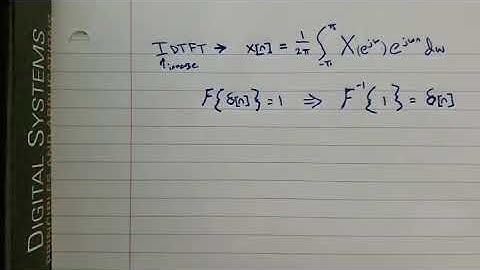 DIGITAL SYSTEMS
IDTFT → x[n] = 1/2π ∫_{-π}^{π} X(e^{jω}) e^{jωn} dω
↑inverse
F{δ[n]} = 1 ⇒ F^{-1}{1} = δ[n]